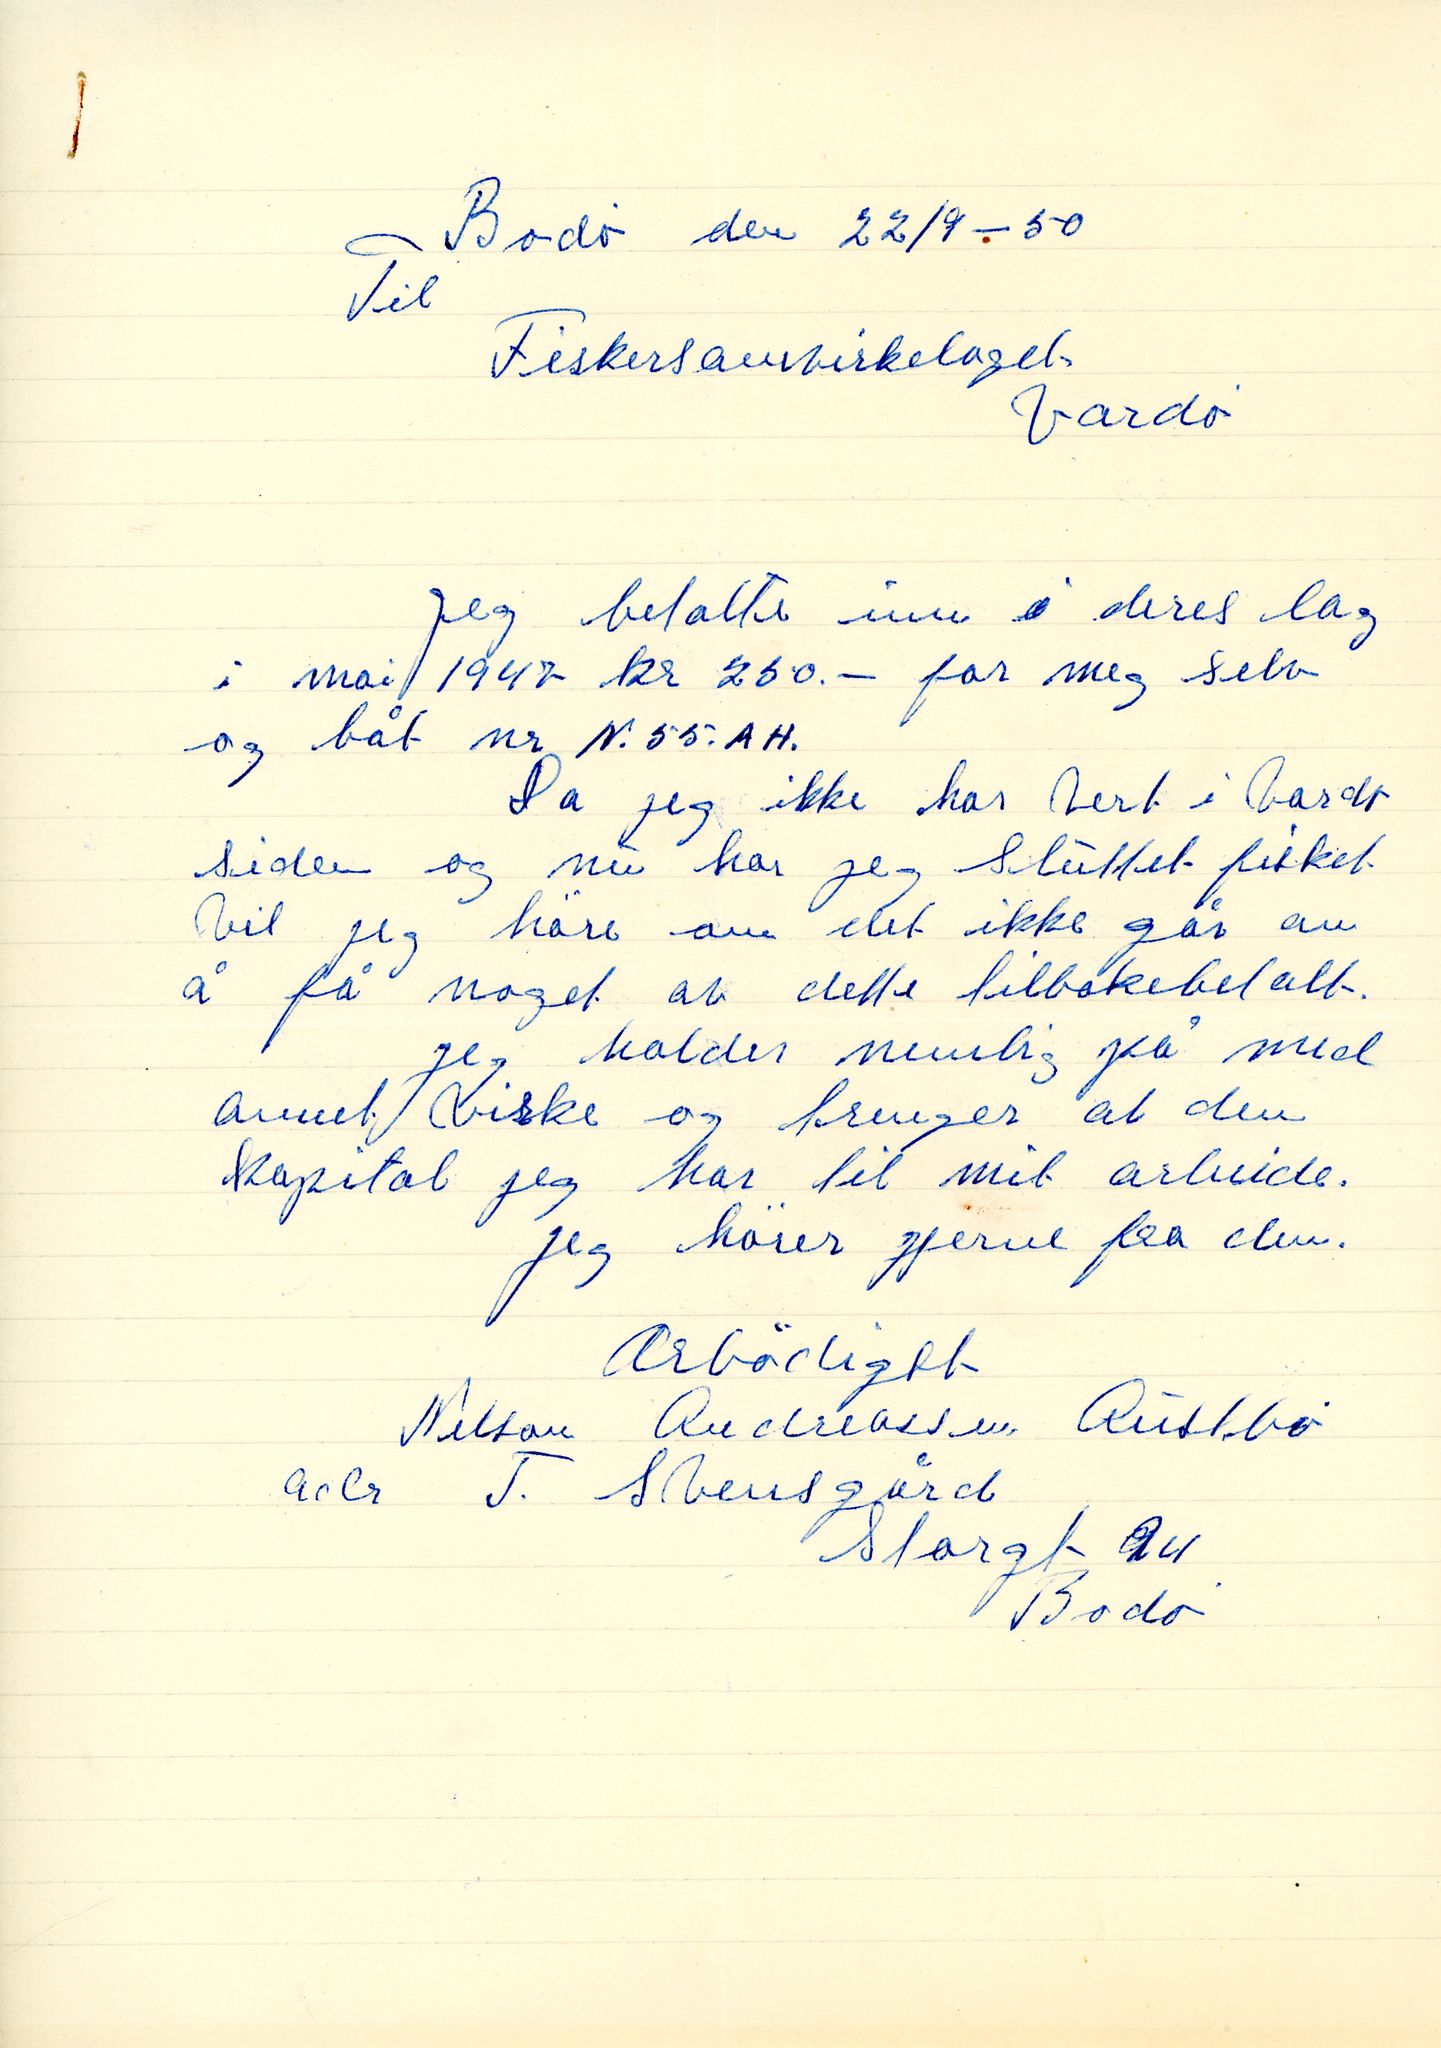 Bodö den 22/9-50
Til
Fiskersamvirkelaget
Vardö
Jeg betalte inn i deres lag
i mai 1947 kr 250.- for meg selv
og båt nr N.55.AH.
Da jeg ikke har vert i Vardö
siden og nu har jeg sluttet fisket
vil jeg höre om det ikke går an
å få noget av dette tilbakebetalt.
Jeg holder nemlig på med
annet virke og trenger at den
kapital jeg har til mit arbeide.
Jeg hörer gjerne fra dem.
Ærbödigst
Nelson Andreassen Austbö
adr T. Svensgård
Storgt 94
Bodö